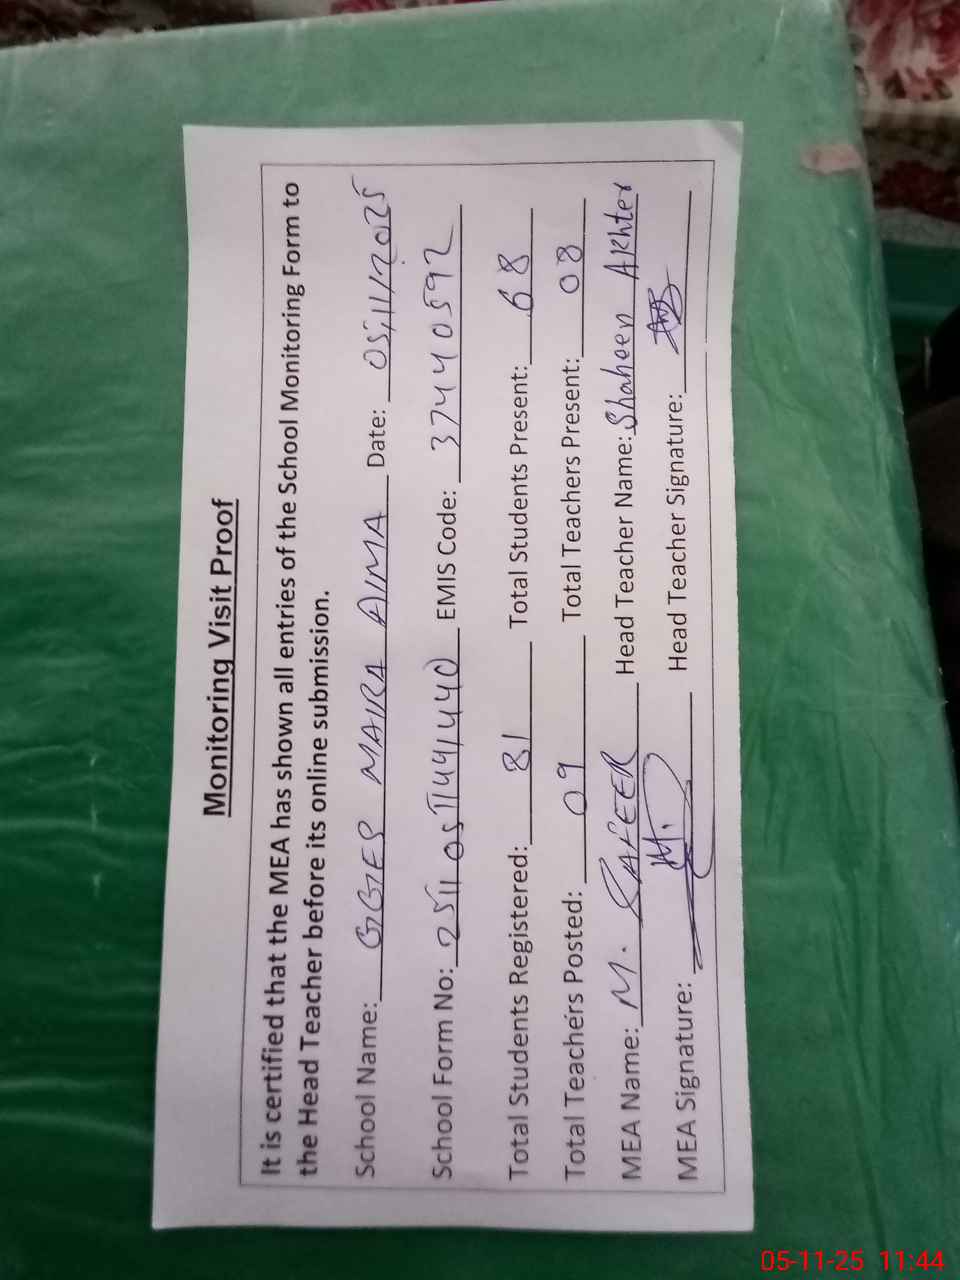 Monitoring Visit Proof
It is certified that the MEA has shown all entries of the School Monitoring Form to
the Head Teacher before its online submission.
School Name: GGES MAIRA AIMA Date: 05/11/2025
School Form No: 25110511441440 EMIS Code: 37440592
Total Students Registered: 81 Total Students Present: 68
Total Teachers Posted: 09 Total Teachers Present: 08
MEA Name: M. RAFEER Head Teacher Name: Shaheen Akhter
MEA Signature: Head Teacher Signature:
05-11-25 11:44